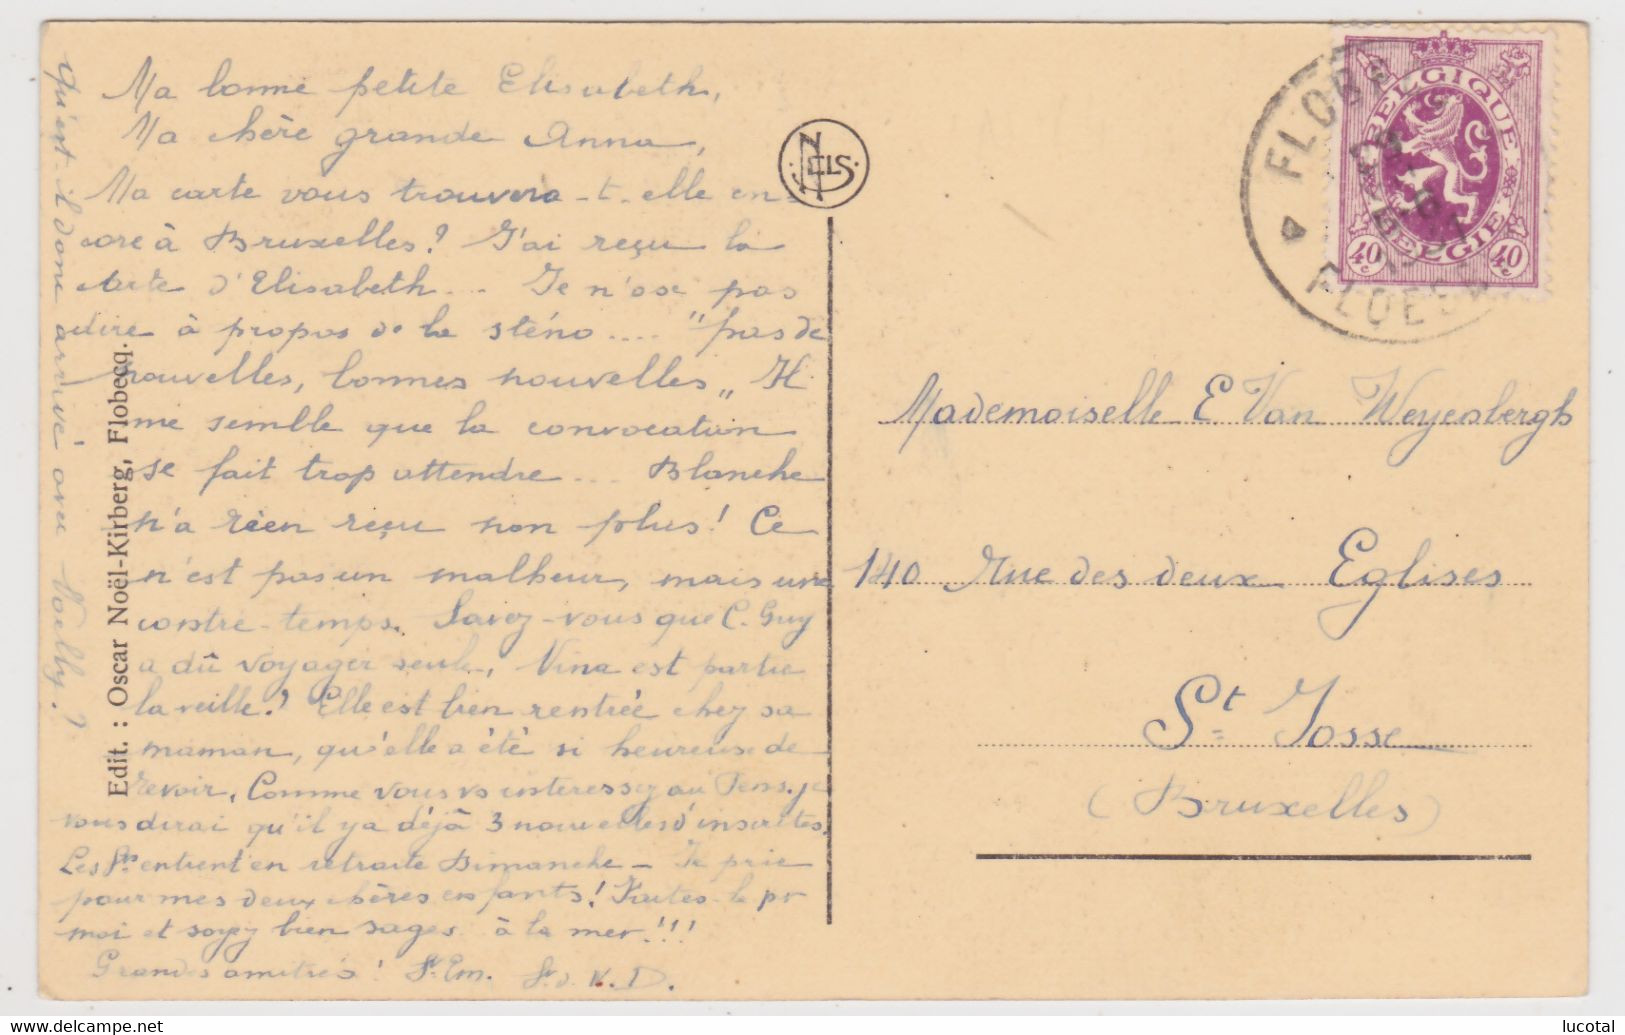 Ma bonne petite Elisabeth,
Ma chère grande Anna,
Ma carte vous trouvera-t-elle en-
core à Bruxelles? J'ai reçu la
carte d'Elisabeth... Je n'ose pas
dire à propos de la sténo .... "pas de
nouvelles, bonnes nouvelles„ Il
me semble que la convocation
se fait trop attendre... Blanche
n'a rien reçu non plus! Ce
n'est pas un malheur, mais une
contre-temps. Savez-vous que C. Guy
a dû voyager seule, Nina est partie
la veille? Elle est bien rentrée chez sa
maman, qu'elle a été si heureuse de
revoir. Comme vous vs interessez au Pens. je
vous dirai qu'il y a déjà 3 nouvelles d'inscrites.
Les Srs entrent en retraite Dimanche - Je prie
pour mes deux chères enfants! Faites-le pr
moi et soyez bien sages à la mer!!!
Grandes amitiés! Sr Em. S. d. N. D.
Qu'est-il donc arrivé au Noelly?
Edit. : Oscar Noël-Kirberg, Flobecq.
NELS
FLOBECQ
FLOESB
BELGIQUE
BELGIE
40 c
40 c
Mademoiselle E Van Weyenbergh
140 Rue des deux Eglises
St Josse
(Bruxelles)
lucotal
www.delcampe.net